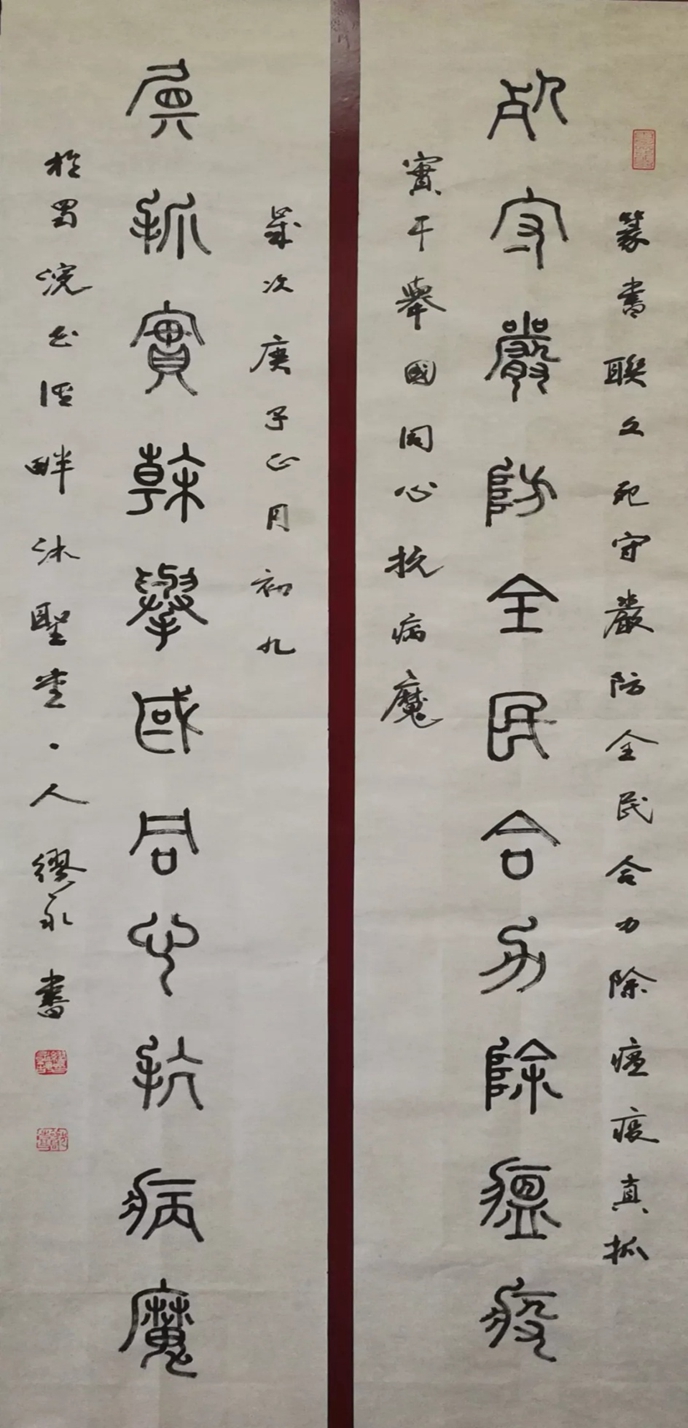 篆書聯文死守嚴防全民合力除瘟疫真抓
死守嚴防全民合力除瘟疫
實干舉國同心抗病魔
歲次庚子正月初九
真抓實幹舉國同心抗病魔
於蜀浣花溪畔沐聖堂主人繆永書